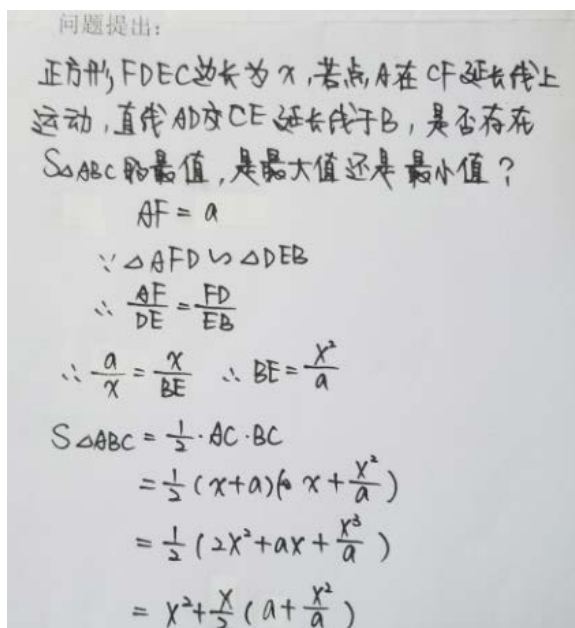 问题提出：
正方形FDEC边长为x，若点A在CF延长线上
运动，直线AD交CE延长线于B，是否存在
S△ABC的最值，是最大值还是最小值？
AF = a
∵ △AFD ∽ △DEB
∴ AF/DE = FD/EB
∴ a/x = x/BE ∴ BE = x²/a
S△ABC = 1/2 · AC · BC
= 1/2 (x+a)(x + x²/a)
= 1/2 (2x² + ax + x³/a)
= x² + x/2 (a + x²/a)